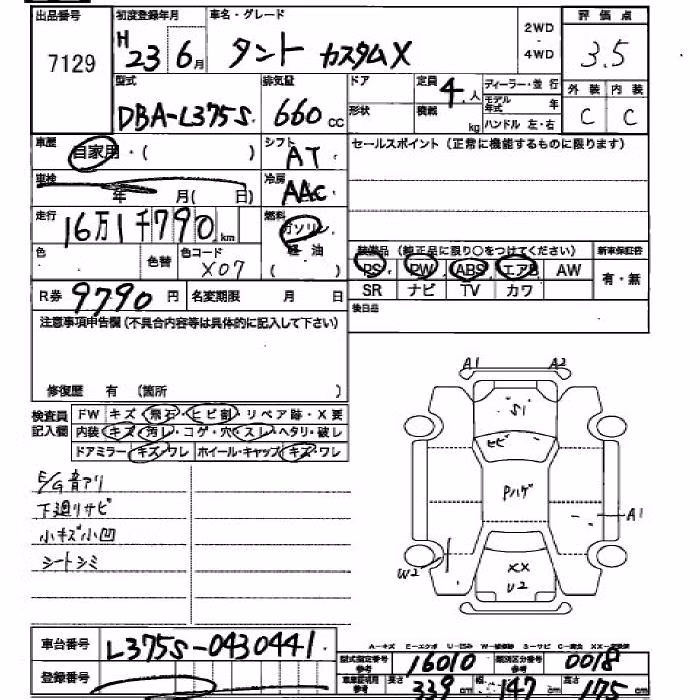 出品番号 初度登録年月 車名・グレード 2WD・4WD 評価点
7129 H 23 6月 タント カスタムX 3.5
型式 排気量 ドア 定員 4人 ディーラー・並行 外装 内装
DBA-L375S 660cc 形状 積載 kg モデル年式 年 C C
ハンドル 左・右
車歴 自家用・( ) シフト AT セールスポイント(正常に機能するものに限ります)
車検 年 月( 日) 冷房 AAC
走行 16万1千790km 燃料 ガソリン
色 色替 色コード X07 軽油 装備品(純正品に限り○をつけてください) 新車保証書
PS PW ABS エアB AW 有・無
R券 9790円 名変期限 月 日 SR ナビ TV カワ
注意事項申告欄(不具合内容等は具体的に記入して下さい) 後日品
修復歴 有 (箇所 )
検査員 FW キズ・飛石・ヒビ割・リペア跡・X要
記入欄 内装・キズ・汚レ・コゲ・穴・スレ・ヘタリ・破レ
ドアミラー・キズ・ワレ ホイール・キャップ・キズ・ワレ
A1 A2
S1
ヒビ
E/G音アリ
下廻リサビ
Pハゲ
A1
小キズ小凹
シートシミ
W2
XX
U2
車台番号 L375S-0430441
A-キズ E-エクボ U-凹み
登録番号
型式指定番号 参考 16010 類別区分番号 参考 0018
車庫証明用 参考 長さ 339cm 幅 147cm 高さ 175cm